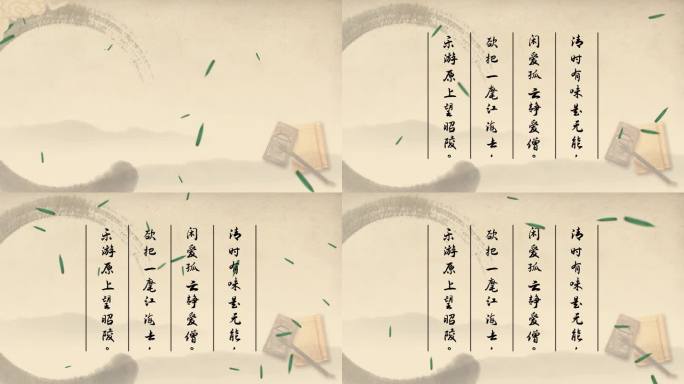 清时有味是无能，
闲爱孤云静爱僧。
欲把一麾江海去，
乐游原上望昭陵。
清时有味是无能，
闲爱孤云静爱僧。
欲把一麾江海去，
乐游原上望昭陵。
清时有味是无能，
闲爱孤云静爱僧。
欲把一麾江海去，
乐游原上望昭陵。